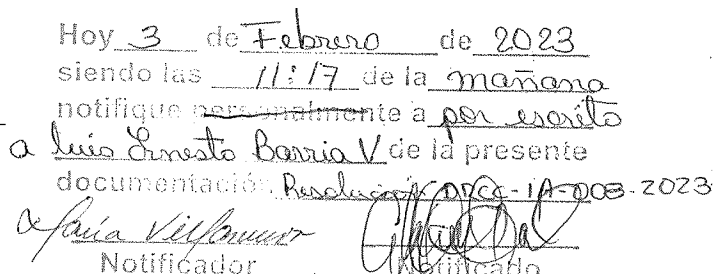 Hoy 3 de Febrero de 2023
siendo las 11:17 de la mañana
notifique personalmente a por escrito
a Luis Ernesto Barria V de la presente
documentación Resolución DRCC-IA-003-2023
Notificador Notificado